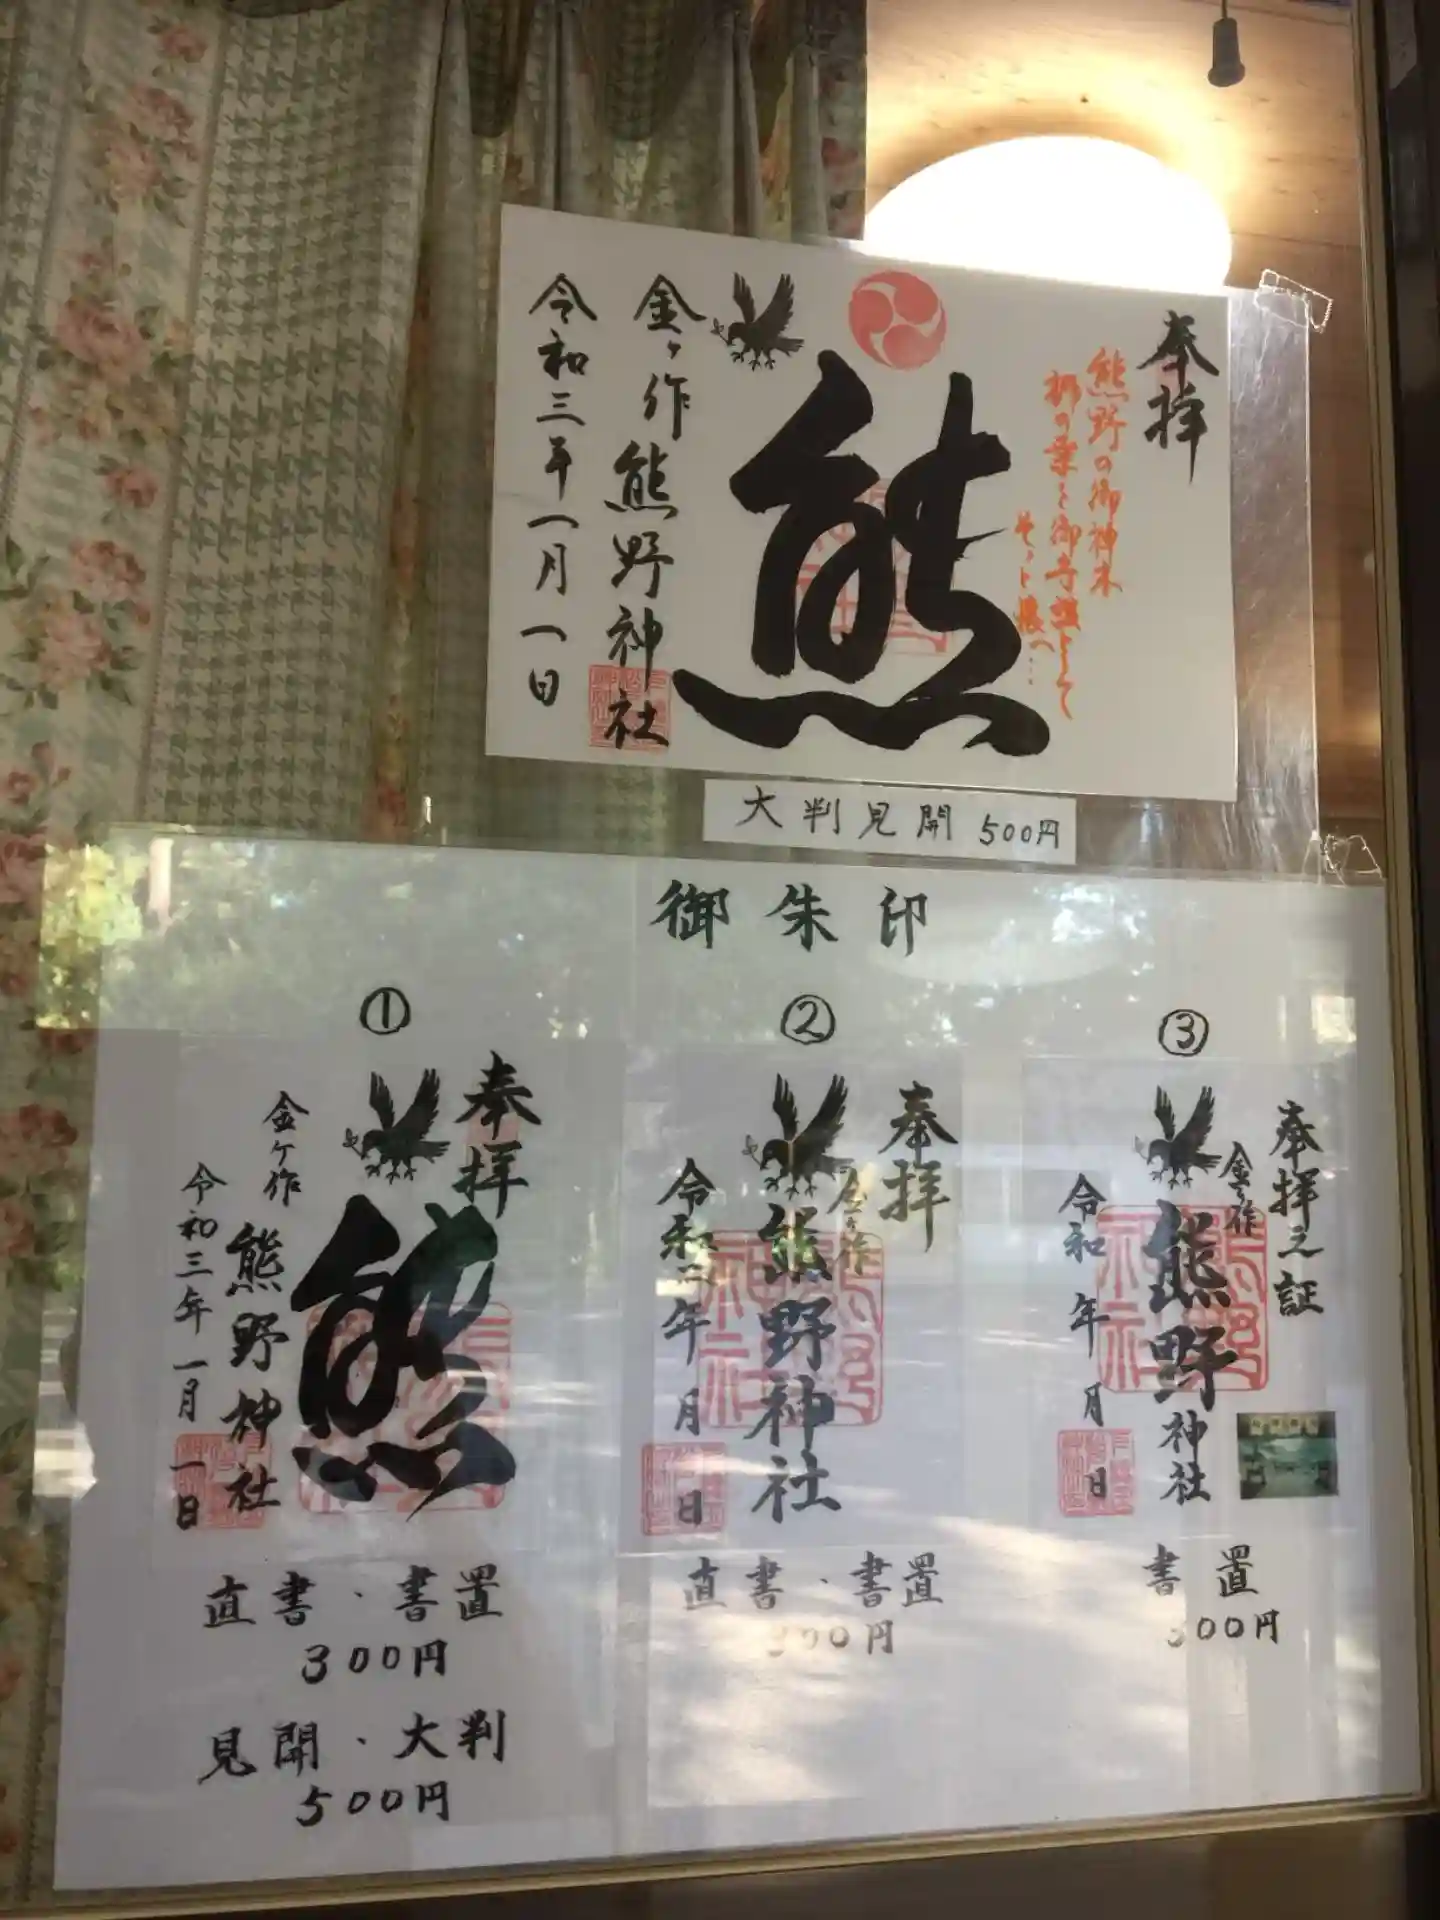 奉拝
熊野の御神木
梛の葉を御守護として
そっと懐へ……
熊
金ヶ作熊野神社
令和三年一月一日
大判見開 500円
御朱印
①
奉拝
熊
金ヶ作
熊野神社
令和三年一月一日
直書・書置
300円
見開・大判
500円
②
奉拝
金ヶ作
熊野神社
令和三年 月 日
直書・書置
300円
③
奉拝之証
金ヶ作
熊野神社
令和 年 月 日
書置
300円